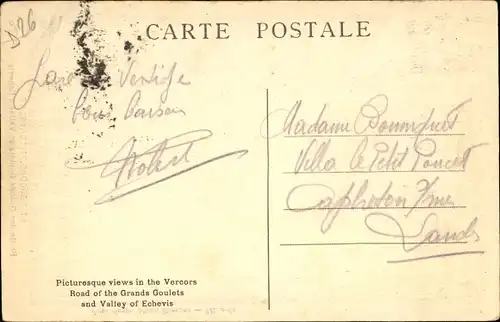 D26
CARTE POSTALE
Vertige
bons baisers
Madame Bonniquet
Villa Le Petit Poucet
Capbreton s/mer
Landes
Picturesque views in the Vercors
Road of the Grands Goulets
and Valley of Echevis